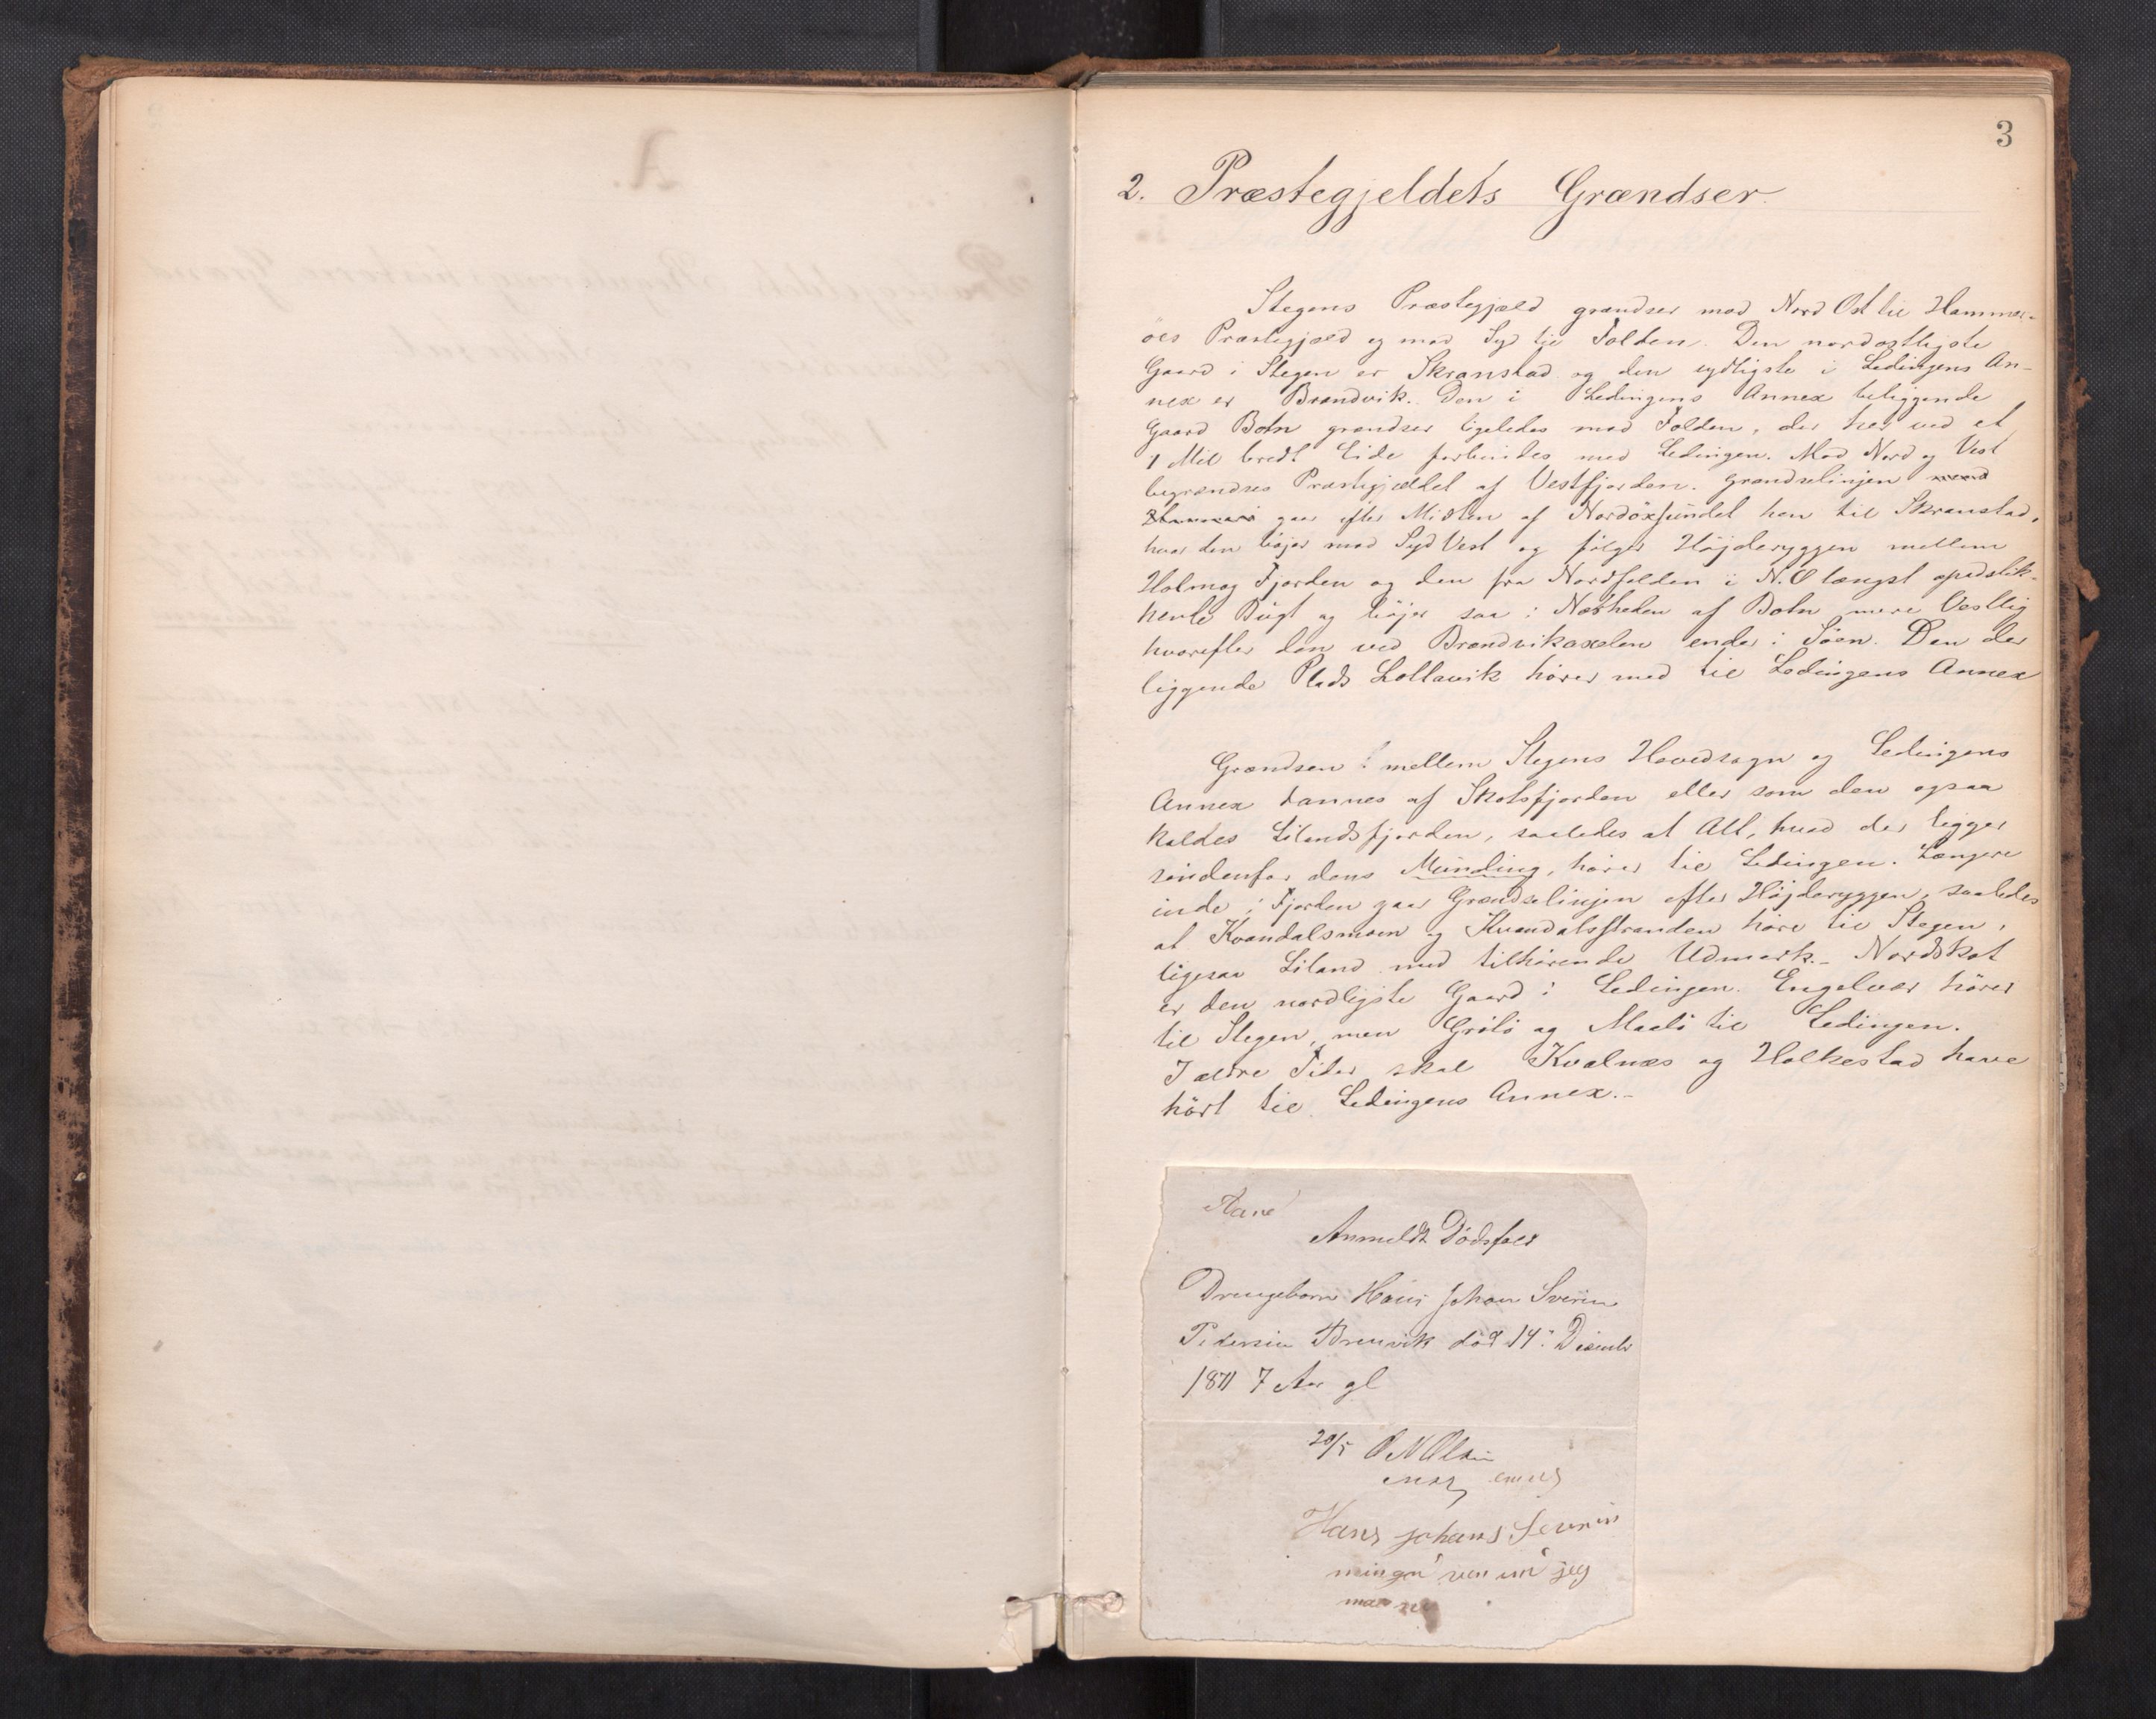 3
2. Præstegjeldets Grændser.
Stegens Præstegjæld grændser mod Nord Ost til Hammer-
öes Præstegjæld og mod Syd til Folden. Den nordostligste
Gaard i Stegen er Skranstad og den sydligste i Ledingens An-
nex er Brandvik. Den i Ledingens Annex beliggende
Gaard Botn grændser ligeledes mod Folden, der her ved et
1 Mil bredt Eide forbindes med Ledingen. Mod Nord og Vest
begrændses Præstegjældet af Vestfjorden. Grændselinjen
gaar efter Midten af Nordöxsundet hen til Skranstad,
hvor den böjer mod Syd Vest og fölger Höjderyggen mellem
Holmog Fjorden og den fra Nordfolden i N.O længst
Bugt og böjer saa i Nærheden af Botn mere Vestlig
hvorefter den ved Brandvikaxelen ender i Söen. Den der
liggende Plads Lollavik hörer med til Ledingens Annex
Grændsen mellem Stegens Hovedsogn og Ledingens
Annex dannes af Skotsfjorden eller som den ogsaa
kaldes Lilandsfjorden, saaledes at Alt, hvad der ligger
söndenfor dens Munding, hörer til Ledingen. Længere
inde i Fjorden gaar Grændselinjen efter Höjderyggen, saaledes
at Kvandalsmoen og Kvandalsstranden höre til Stegen,
ligesaa Liland med tilhörende Udmark. - Nordskot
er den nordligste Gaard i Ledingen. Engelvær hörer
til Stegen, men Grötö og Maalö til Ledingen.
I ældre Tider skal Kvalnæs og Holkestad have
hört til Ledingens Annex. -
Anmeldt Dödsfald
Drengebarn Hans Johan Sverin
Pedersen Brenvik död 14de Desember
1871 7 Aar gl
20/5 O N Olsen
Hans Johans Severin
jeg